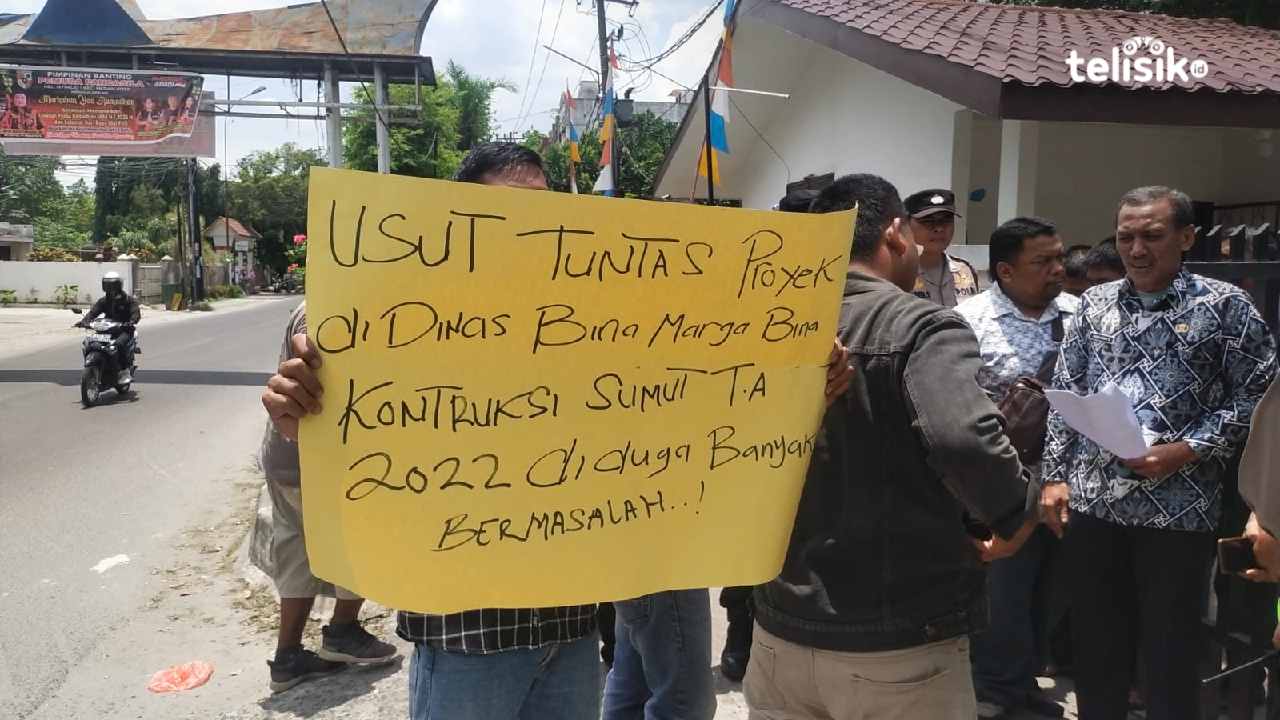 telisik.id
PIMPINAN RANTING
PEMUDA PANCASILA
USUT TUNTAS Proyek
di Dinas Bina Marga Bina
KONTRUKSI SUMUT T.A
2022 di duga Banyak
BERMASALAH..!